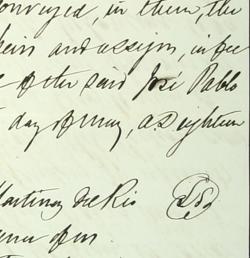 conveyed, in them, the
heirs and assigns, in fee
of the said José Pablo
day of May, A.D. eighteen
Martinez del Rio